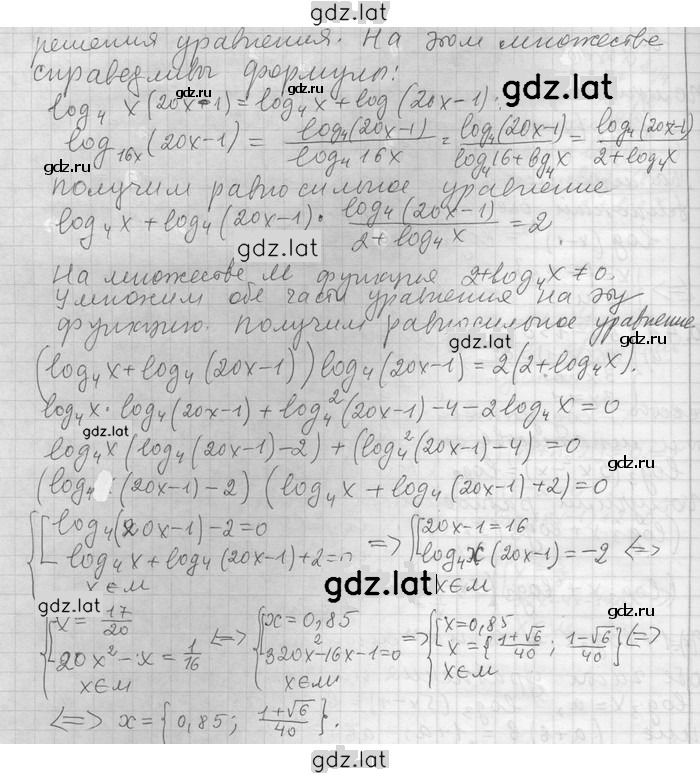 gdz.lat
решения уравнения. На этом множестве
справедливы формулы:
gdz.lat
log₄ x(20x-1) = log₄x + log (20x-1).
log₁₆ₓ(20x-1) = log₄(20x-1)/log₄16x = log₄(20x-1)/log₄16+log₄x = log₄(20x-1)/2+log₄x
gdz.lat gdz.lat
получим равносильное уравнение
log₄x + log₄(20x-1) · log₄(20x-1)/2+log₄x = 2.
gdz.lat
На множестве М функция 2+log₄x ≠ 0.
Умножим обе части уравнения на эту
функцию. Получим равносильное уравнение
gdz.lat
(log₄x + log₄(20x-1)) log₄(20x-1) = 2(2+log₄x).
log₄x · log₄(20x-1) + log₄²(20x-1) - 4 - 2log₄x = 0
gdz.lat
log₄x(log₄(20x-1)-2) + (log₄²(20x-1)-4) = 0
gdz.lat
(log₄(20x-1)-2) (log₄x + log₄(20x-1)+2) = 0
{[log₄(20x-1)-2=0 => {[20x-1=16
log₄x+log₄(20x-1)+2=0 log₄x(20x-1)=-2 <=>
x∈М x∈М
gdz.lat
gdz.lat gdz.lat
{[x=17/20 <=> {[x=0,85 => {[x=0,85
20x²-x=1/16 320x²-16x-1=0 x={1+√6/40; 1-√6/40} <=>
x∈М x∈М x∈М
<=> x={0,85; 1+√6/40}.
gdz.lat